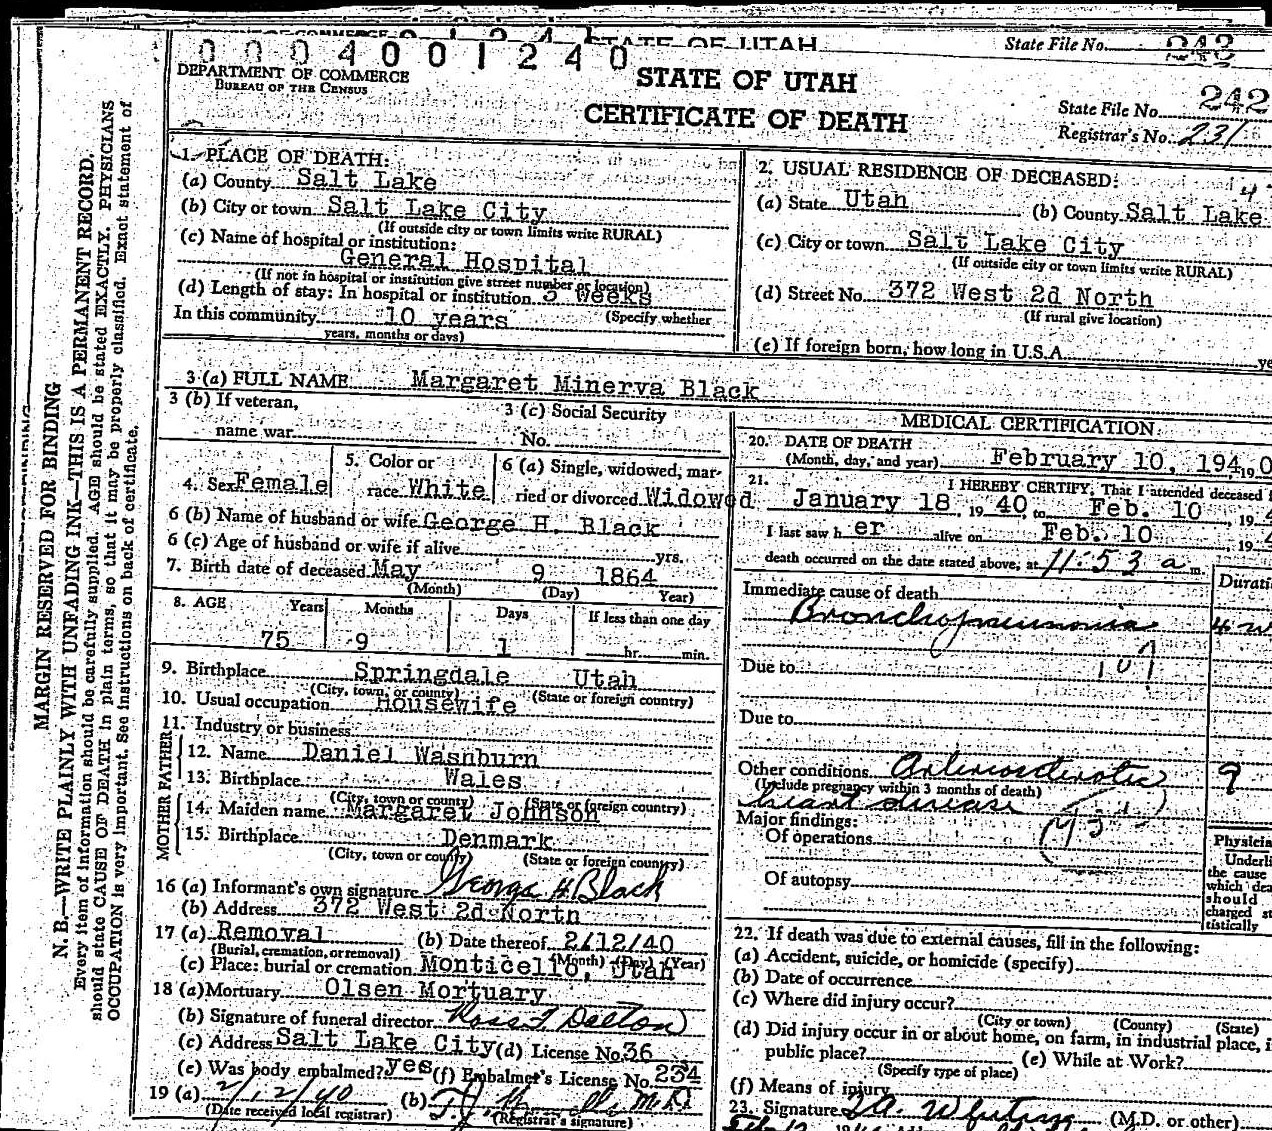 STATE OF UTAH
State File No. 243
0 0 0 4 0 0 1 2 4 0
DEPARTMENT OF COMMERCE
BUREAU OF THE CENSUS
STATE OF UTAH
CERTIFICATE OF DEATH
State File No. 242
Registrar's No. 231
MARGIN RESERVED FOR BINDING
N. B.—WRITE PLAINLY WITH UNFADING INK—THIS IS A PERMANENT RECORD.
Every item of information should be carefully supplied. AGE should be stated EXACTLY. PHYSICIANS
should state CAUSE OF DEATH in plain terms, so that it may be properly classified. Exact statement of
OCCUPATION is very important. See instructions on back of certificate.
1. PLACE OF DEATH:
(a) County Salt Lake
(b) City or town Salt Lake City
(If outside city or town limits write RURAL)
(c) Name of hospital or institution:
General Hospital
(If not in hospital or institution give street number or location)
(d) Length of stay: In hospital or institution 3 weeks
In this community 10 years (Specify whether
years, months or days)
2. USUAL RESIDENCE OF DECEASED:
(a) State Utah (b) County Salt Lake
(c) City or town Salt Lake City
(If outside city or town limits write RURAL)
(d) Street No. 372 West 2d North
(If rural give location)
(e) If foreign born, how long in U.S.A.
3 (a) FULL NAME Margaret Minerva Black
3 (b) If veteran,
name war
3 (c) Social Security
No.
4. Sex Female
5. Color or
race White
6 (a) Single, widowed, mar-
ried or divorced Widowed
6 (b) Name of husband or wife George H. Black
6 (c) Age of husband or wife if alive yrs.
7. Birth date of deceased May 9 1864
(Month) (Day) Year)
8. AGE Years Months Days If less than one day
75 9 1 hr. min.
9. Birthplace Springdale Utah
(City, town, or county) (State or foreign country)
10. Usual occupation Housewife
11. Industry or business
FATHER
12. Name Daniel Washburn
13. Birthplace Wales
(City, town or county) (State or foreign country)
MOTHER
14. Maiden name Margaret Johnson
15. Birthplace Denmark
(City, town or county) (State or foreign country)
16 (a) Informant's own signature George H Black
(b) Address 372 West 2d North
17 (a) Removal (b) Date thereof 2/12/40
(Burial, cremation, or removal) (Month) (Day) (Year)
(c) Place: burial or cremation Monticello, Utah
18 (a) Mortuary Olsen Mortuary
(b) Signature of funeral director Ross F Dalton
(c) Address Salt Lake City (d) License No. 36
(e) Was body embalmed? yes (f) Embalmer's License No. 234
19 (a) 2/12/40 (b) M.D.
(Date received local registrar) (Registrar's signature)
MEDICAL CERTIFICATION
20. DATE OF DEATH
(Month, day, and year) February 10, 194 19 0
21. I HEREBY CERTIFY, That I attended deceased f
January 18, 19 40, to Feb. 10, 19 4
I last saw h er alive on Feb. 10, 19 4
death occurred on the date stated above, at 11:53 a m.
Immediate cause of death
Duratio
Bronchopneumonia 4 w
Due to 107
Due to
Other conditions Arteriosclerotic 9
(Include pregnancy within 3 months of death)
heart disease
Major findings:
Of operations
Of autopsy
Physicia
Underli
the cause
which dea
should
charged st
tistically
22. If death was due to external causes, fill in the following:
(a) Accident, suicide, or homicide (specify)
(b) Date of occurrence
(c) Where did injury occur?
(City or town) (County) (State)
(d) Did injury occur in or about home, on farm, in industrial place, i
public place? (e) While at Work?
(Specify type of place)
(f) Means of injury
23. Signature (M.D. or other)